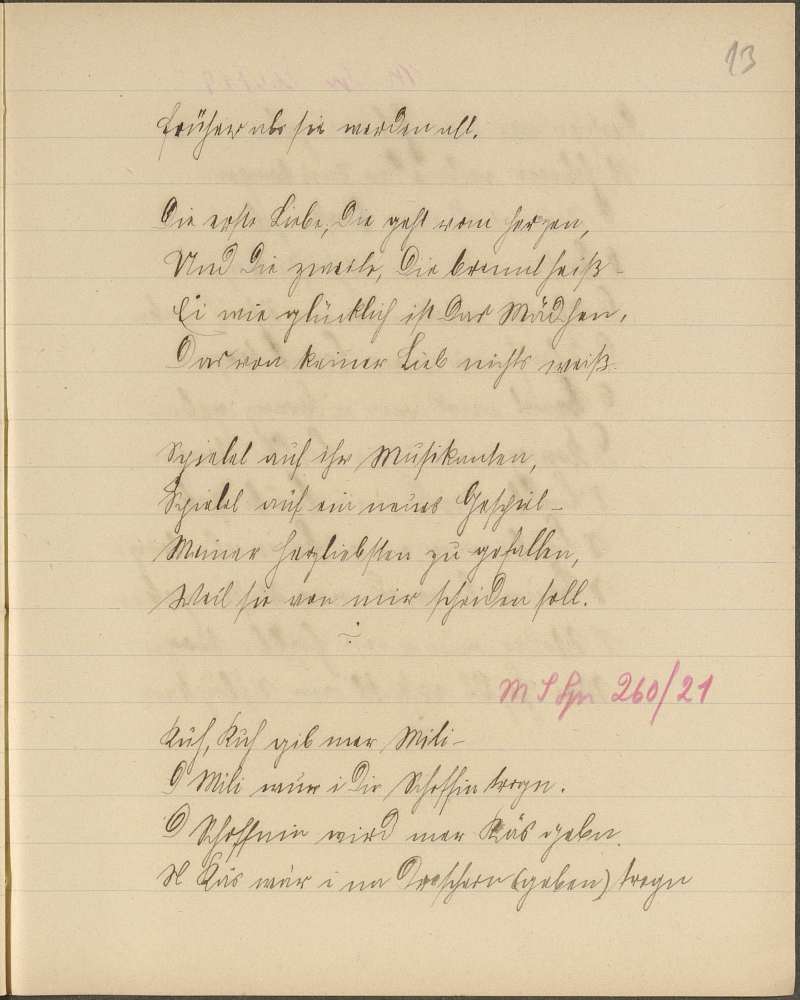 13
früher als sie werden all.
Die erste Liebe, Die geht vom Herzen,
Und Die zweite, Die brennt heiß -
Ei wie glücklich ist Das Mädchen,
Das von keiner Lieb nichts weiß.
Spielet auf ihr Musikanten,
Spielet auf ein neues Geschpiel -
Meiner Herzliebsten zu gefallen,
Weil sie von mir scheiden soll.
260/21
Kuh, Kuh gib mer Mili -
D Mili wur i Dir trogn.
D wird mer Käs gebn.
Käs wär i na (geben) trogn